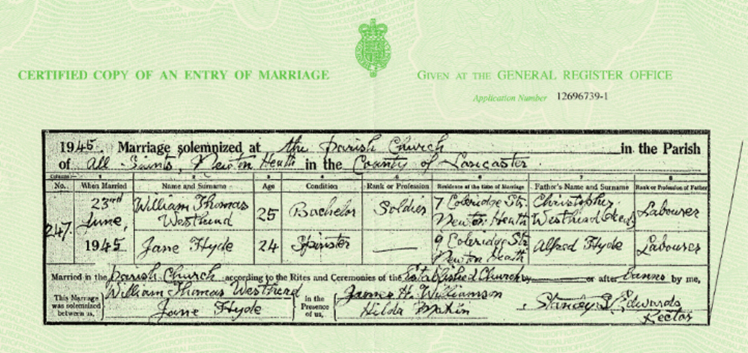 CERTIFIED COPY OF AN ENTRY OF MARRIAGE
GIVEN AT THE GENERAL REGISTER OFFICE
Application Number 12696739-1
1945. Marriage solemnized at the Parish Church in the Parish
of All Saints, Newton Heath in the County of Lancaster
No. When Married Name and Surname Age Condition Rank or Profession Residence at the time of Marriage Father's Name and Surname Rank or Profession of Father
247. 23rd June, 1945 William Thomas Westhead 25 Bachelor Soldier 7 Coleridge St. Newton Heath Christopher Westhead Labourer
Jane Hyde 24 Spinster — 9 Coleridge St. Newton Heath Alfred Hyde Labourer
Married in the Parish Church according to the Rites and Ceremonies of the Established Church or after banns by me,
This Marriage was solemnized between us, William Thomas Westhead Jane Hyde in the Presence of us, James H. Williamson Hilda
Edwards
Rector